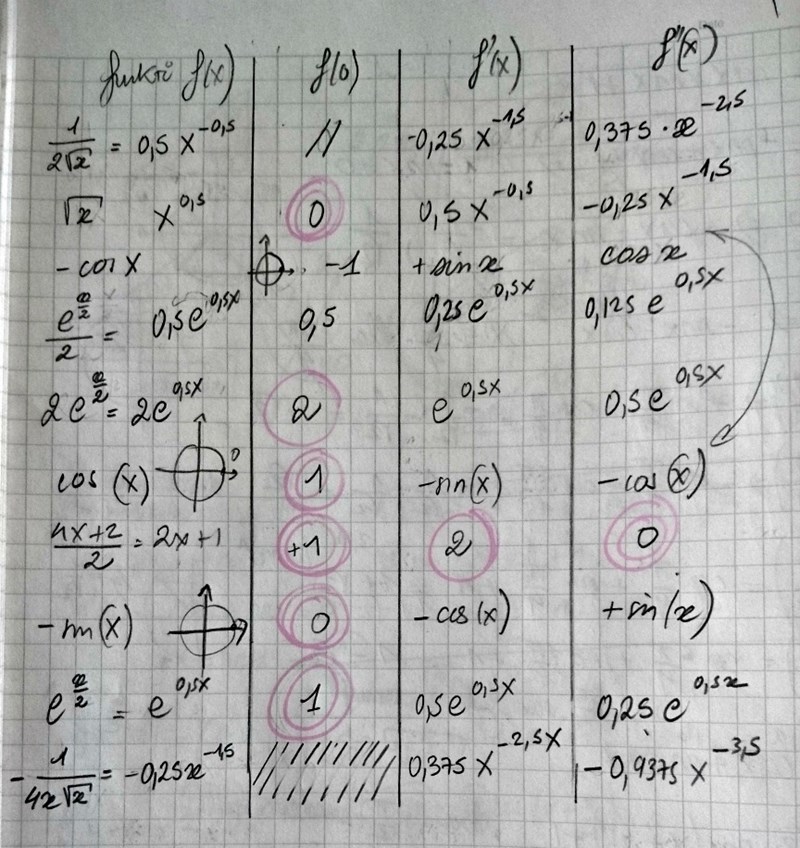 funkti f(x) f(0) f'(x) f''(x)
1/2√x = 0,5 x^-0,5 // -0,25 x^-1,5 0,375 · x^-2,5
√x x^0,5 0 0,5 x^-0,5 -0,25 x^-1,5
- cos x -1 + sin x cos x
e^x/2 / 2 = 0,5e^0,5x 0,5 0,25 e^0,5x 0,125 e^0,5x
2e^x/2 = 2e^0,5x 2 e^0,5x 0,5 e^0,5x
cos (x) 0 1 -sin(x) -cos(x)
4x+2/2 = 2x+1 +1 2 0
-sin(x) 0 - cos(x) + sin(x)
e^x/2 = e^0,5x 1 0,5e^0,5x 0,25 e^0,5x
- 1/4x√x = -0,25x^-1,5 0,375 x^-2,5x - 0,9375 x^-3,5